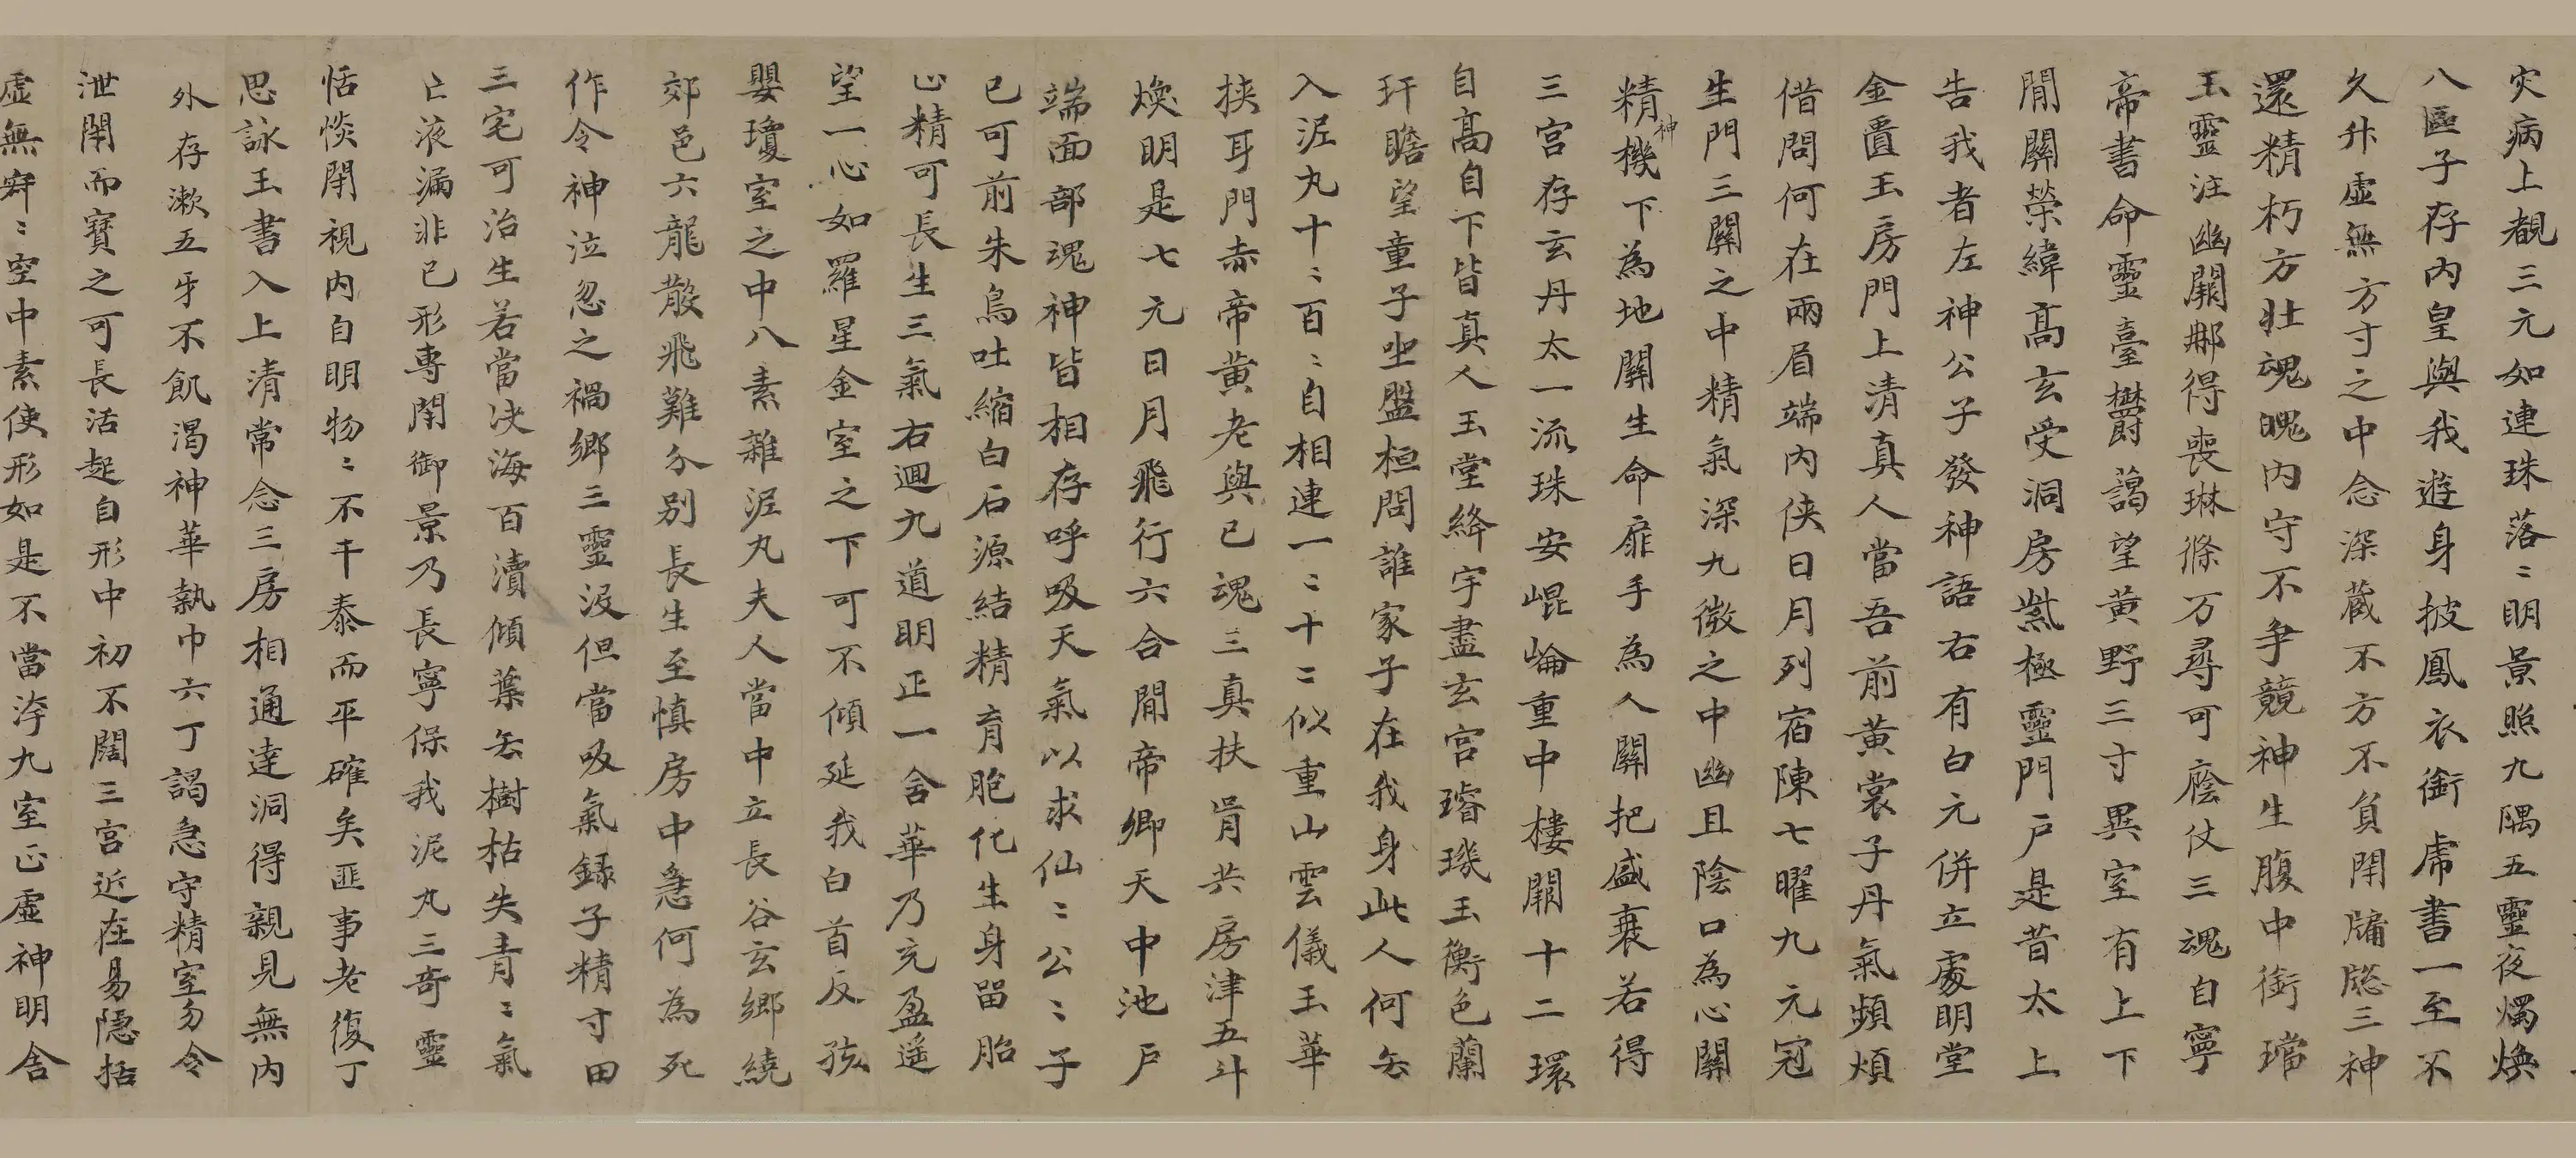 灾病上覩三元如連珠落〻明景照九隅五靈夜燭煥
八區子存内皇與我遊身披鳳衣銜虎書一至不
久升虛無方寸之中念深藏不方不負閇牖牕三神
還精朽方壮魂魄内守不争競神生腹中銜璫
玉靈注幽闕鄁得喪琳條万尋可廕仗三魂自寧
帝書命靈臺欝藹望黄野三寸異室有上下
閒關榮緯髙玄受洞房紫極靈門戶是昔太上
告我者左神公子發神語右有白元併立處明堂
金匱玉房門上清真人當吾前黄裳子丹氣頻煩
借問何在兩眉端内俠日月列宿陳七曜九元冠
生門三關之中精氣深九微之中幽且陰口為心關
精神機下為地關生命扉手為人關把盛衰若得
三宮存玄丹太一流珠安崐崘重中樓閣十二環
自髙自下皆真人玉堂絳宇盡玄宮璿璣玉衡色蘭
玕瞻望童子坐盤桓問誰家子在我身此人何去
入泥丸千〻百〻自相連一〻十〻似重山雲儀玉華
挟耳門赤帝黄老與己魂三真扶胥共房津五斗
煥明是七元日月飛行六合間帝鄉天中池戶
端面部魂神皆相存呼吸天氣以求仙〻公〻子
已可前朱鳥吐縮白石源結精育胞化生身留胎
止精可長生三氣右迴九道明正一含華乃充盈遥
望一心如羅星金室之下可不傾延我白首反孩
嬰瓊室之中八素雜泥丸夫人當中立長谷玄鄉繞
郊邑六龍散飛難分別長生至慎房中急何為死
作令神泣忽之禍鄉三靈沒但當吸氣録子精寸田
三宅可治生若當决海百瀆傾葉去樹枯失青〻氣
亡液漏非己形專閇御景乃長寧保我泥丸三奇靈
恬惔閇視内自明物〻不干泰而平確矣匪事老復丁
思詠玉書入上清常念三房相通達洞得親見無内
外存漱五牙不飢渴神華執巾六丁謁急守精室勿令
泄閇而寶之可長活起自形中初不闊三宮近在易隱括
虛無寂〻空中素使形如是不當洿九室正虛神明舍